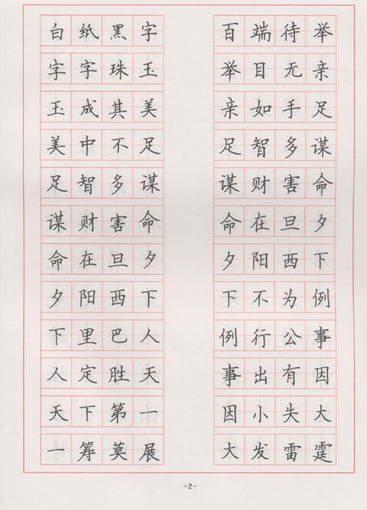 白纸黑字
字字珠玉
玉成其美
美中不足
足智多谋
谋财害命
命在旦夕
夕阳西下
下里巴人
人定胜天
天下第一
一筹莫展
百端待举
举目无亲
亲如手足
足智多谋
谋财害命
命在旦夕
夕阳西下
下不为例
例行公事
事出有因
因小失大
大发雷霆
-2-